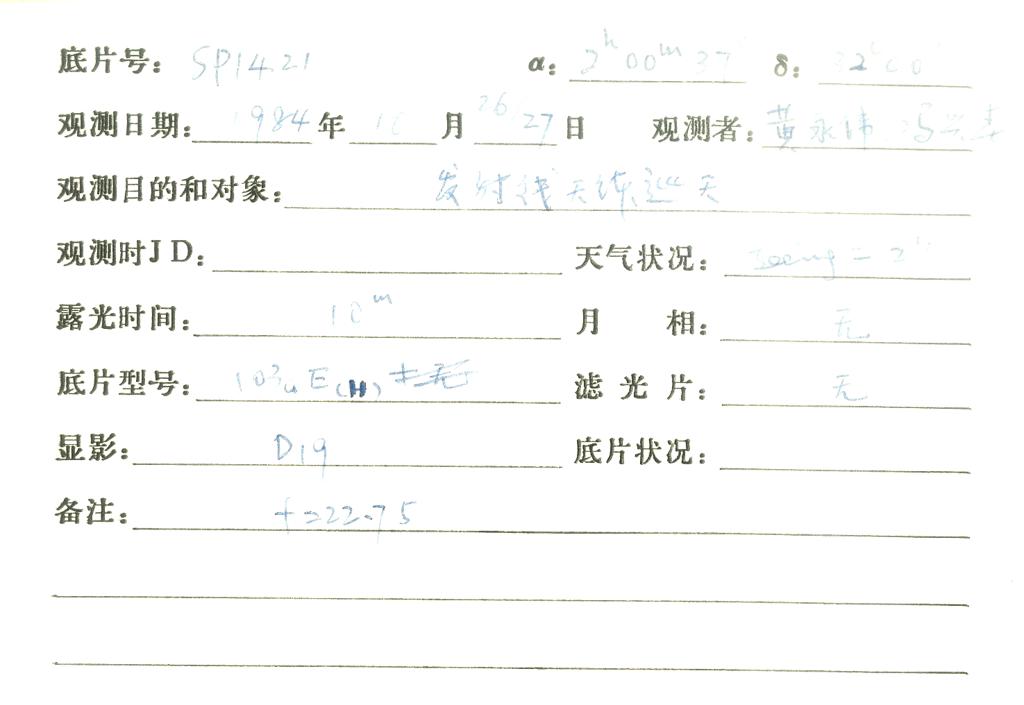 底片号: SP1421 α: 2h 00m 37 δ: 32° 00'
观测日期: 1984 年 10 月 26/27 日 观测者: 黄永伟
观测目的和对象: 发射线天体巡天
观测时JD:  天气状况: seeing = 2"
露光时间: 10m 月 相: 无
底片型号: 103a E (H) 滤光片: 无
显影: D19 底片状况:
备注: f=22.75